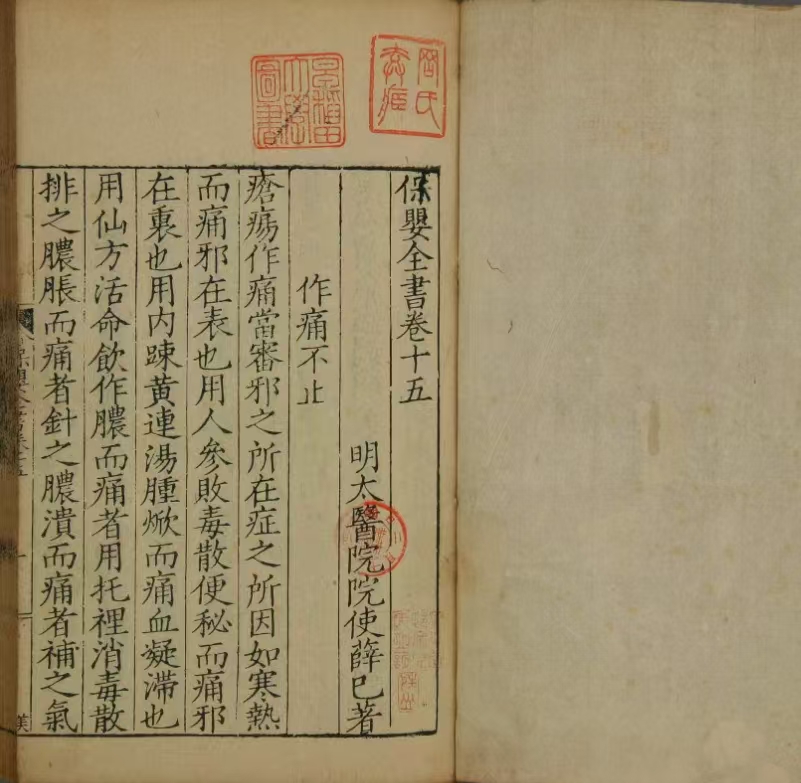 保嬰全書卷十五
明太醫院院使薛已著
作痛不止
瘡瘍作痛當審邪之所在症之所因如寒熱
而痛邪在表也用人參敗毒散便秘而痛邪
在裏也用内踈黄連湯腫焮而痛血凝滞也
用仙方活命飲作膿而痛者用托裡消毒散
排之膿脹而痛者針之膿潰而痛者補之氣
早稲田大學圖書